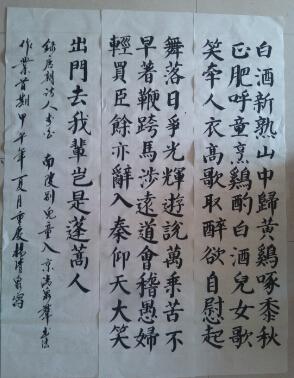 白酒新熟山中歸黃鷄啄黍秋
正肥呼童烹鷄酌白酒兒女歌
笑牽人衣高歌取醉欲自慰起
舞落日爭光輝遊說萬乘苦不
早著鞭跨馬涉遠道會稽愚婦
輕買臣餘亦辭入秦仰天大笑
出門去我輩豈是蓬蒿人
錄唐朝詩人李白 南陵別兒童入京
作業首期甲午年夏月重慶楊